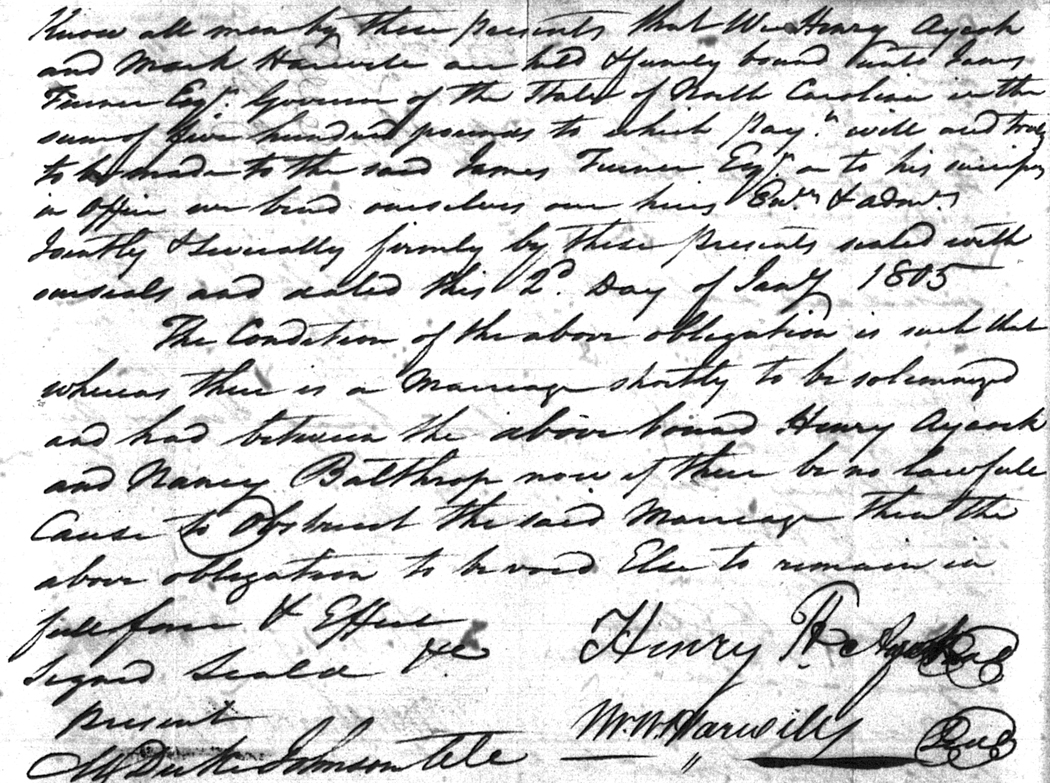 Know all men by these presents that We Henry Aycock
and Mark Harwell are held & firmly bound unto James
Turner Esqr. Governor of the State of North Carolina in the
sum of five hundred pounds to which Paymt. will and truly
to be made to the said James Turner Esqr. or to his
in office we bind ourselves our heirs & admrs.
Jointly & severally firmly by these presents sealed with
our seals and dated this 2d. Day of Jany 1805
The Condition of the above obligation is such that
whereas there is a Marriage shortly to be solemnized
and had between the above bound Henry Aycock
and Nancy Balthrop now if there be no lawfull
Cause to Obstruct the said Marriage then the
above obligation to be void Else to remain in
full force & Effect
Signed Seald &c
present
M Duke Johnson Henry Aycock Seal
Harwell Seal